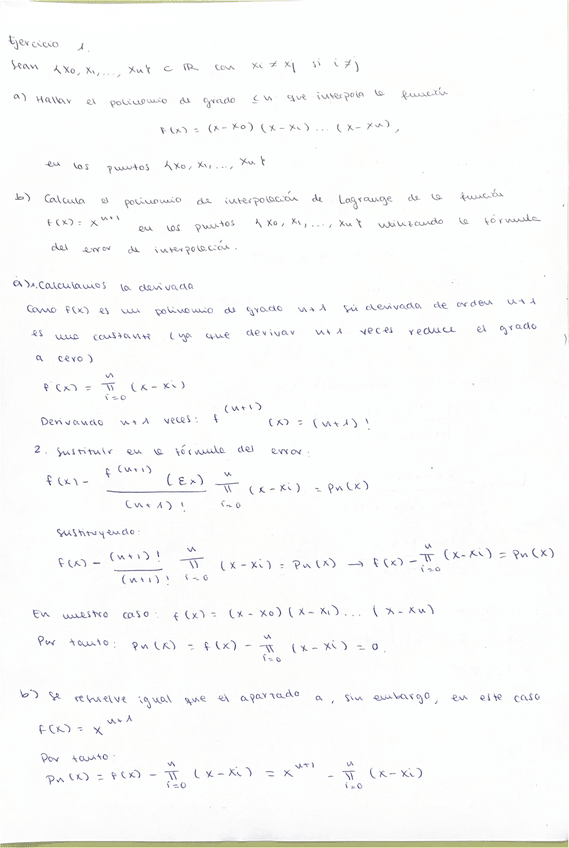 Ejercicio 1.
Sean {x₀, x₁, ..., xₙ} ⊂ ℝ con xᵢ ≠ xⱼ si i ≠ j
a) Hallar el polinomio de grado ≤ n que interpola la función
f(x) = (x - x₀) (x - x₁) ... (x - xₙ),
en los puntos {x₀, x₁, ..., xₙ}
b) Calcula el polinomio de interpolación de Lagrange de la función
f(x) = xⁿ⁺¹ en los puntos {x₀, x₁, ..., xₙ} utilizando la fórmula
del error de interpolación.
a) 1. Calculamos la derivada
Como f(x) es un polinomio de grado n+1 su derivada de orden n+1
es una constante (ya que derivar n+1 veces reduce el grado
a cero)
f(x) = ∏ᵢ₌₀ⁿ (x - xᵢ)
Derivando n+1 veces: f⁽ⁿ⁺¹⁾ (x) = (n+1)!
2. Sustituir en la fórmula del error:
f(x) - f⁽ⁿ⁺¹⁾(Ɛx) / (n+1)! ∏ᵢ₌₀ⁿ (x - xᵢ) = Pn(x)
Sustituyendo:
f(x) - (n+1)! / (n+1)! ∏ᵢ₌₀ⁿ (x - xᵢ) = Pn(x) → f(x) - ∏ᵢ₌₀ⁿ (x - xᵢ) = Pn(x)
En nuestro caso: f(x) = (x - x₀) (x - x₁) ... (x - xₙ)
Por tanto: Pn(x) = f(x) - ∏ᵢ₌₀ⁿ (x - xᵢ) = 0.
b) Se resuelve igual que el apartado a, sin embargo, en este caso
f(x) = xⁿ⁺¹
Por tanto:
Pn(x) = f(x) - ∏ᵢ₌₀ⁿ (x - xᵢ) = xⁿ⁺¹ - ∏ᵢ₌₀ⁿ (x - xᵢ)